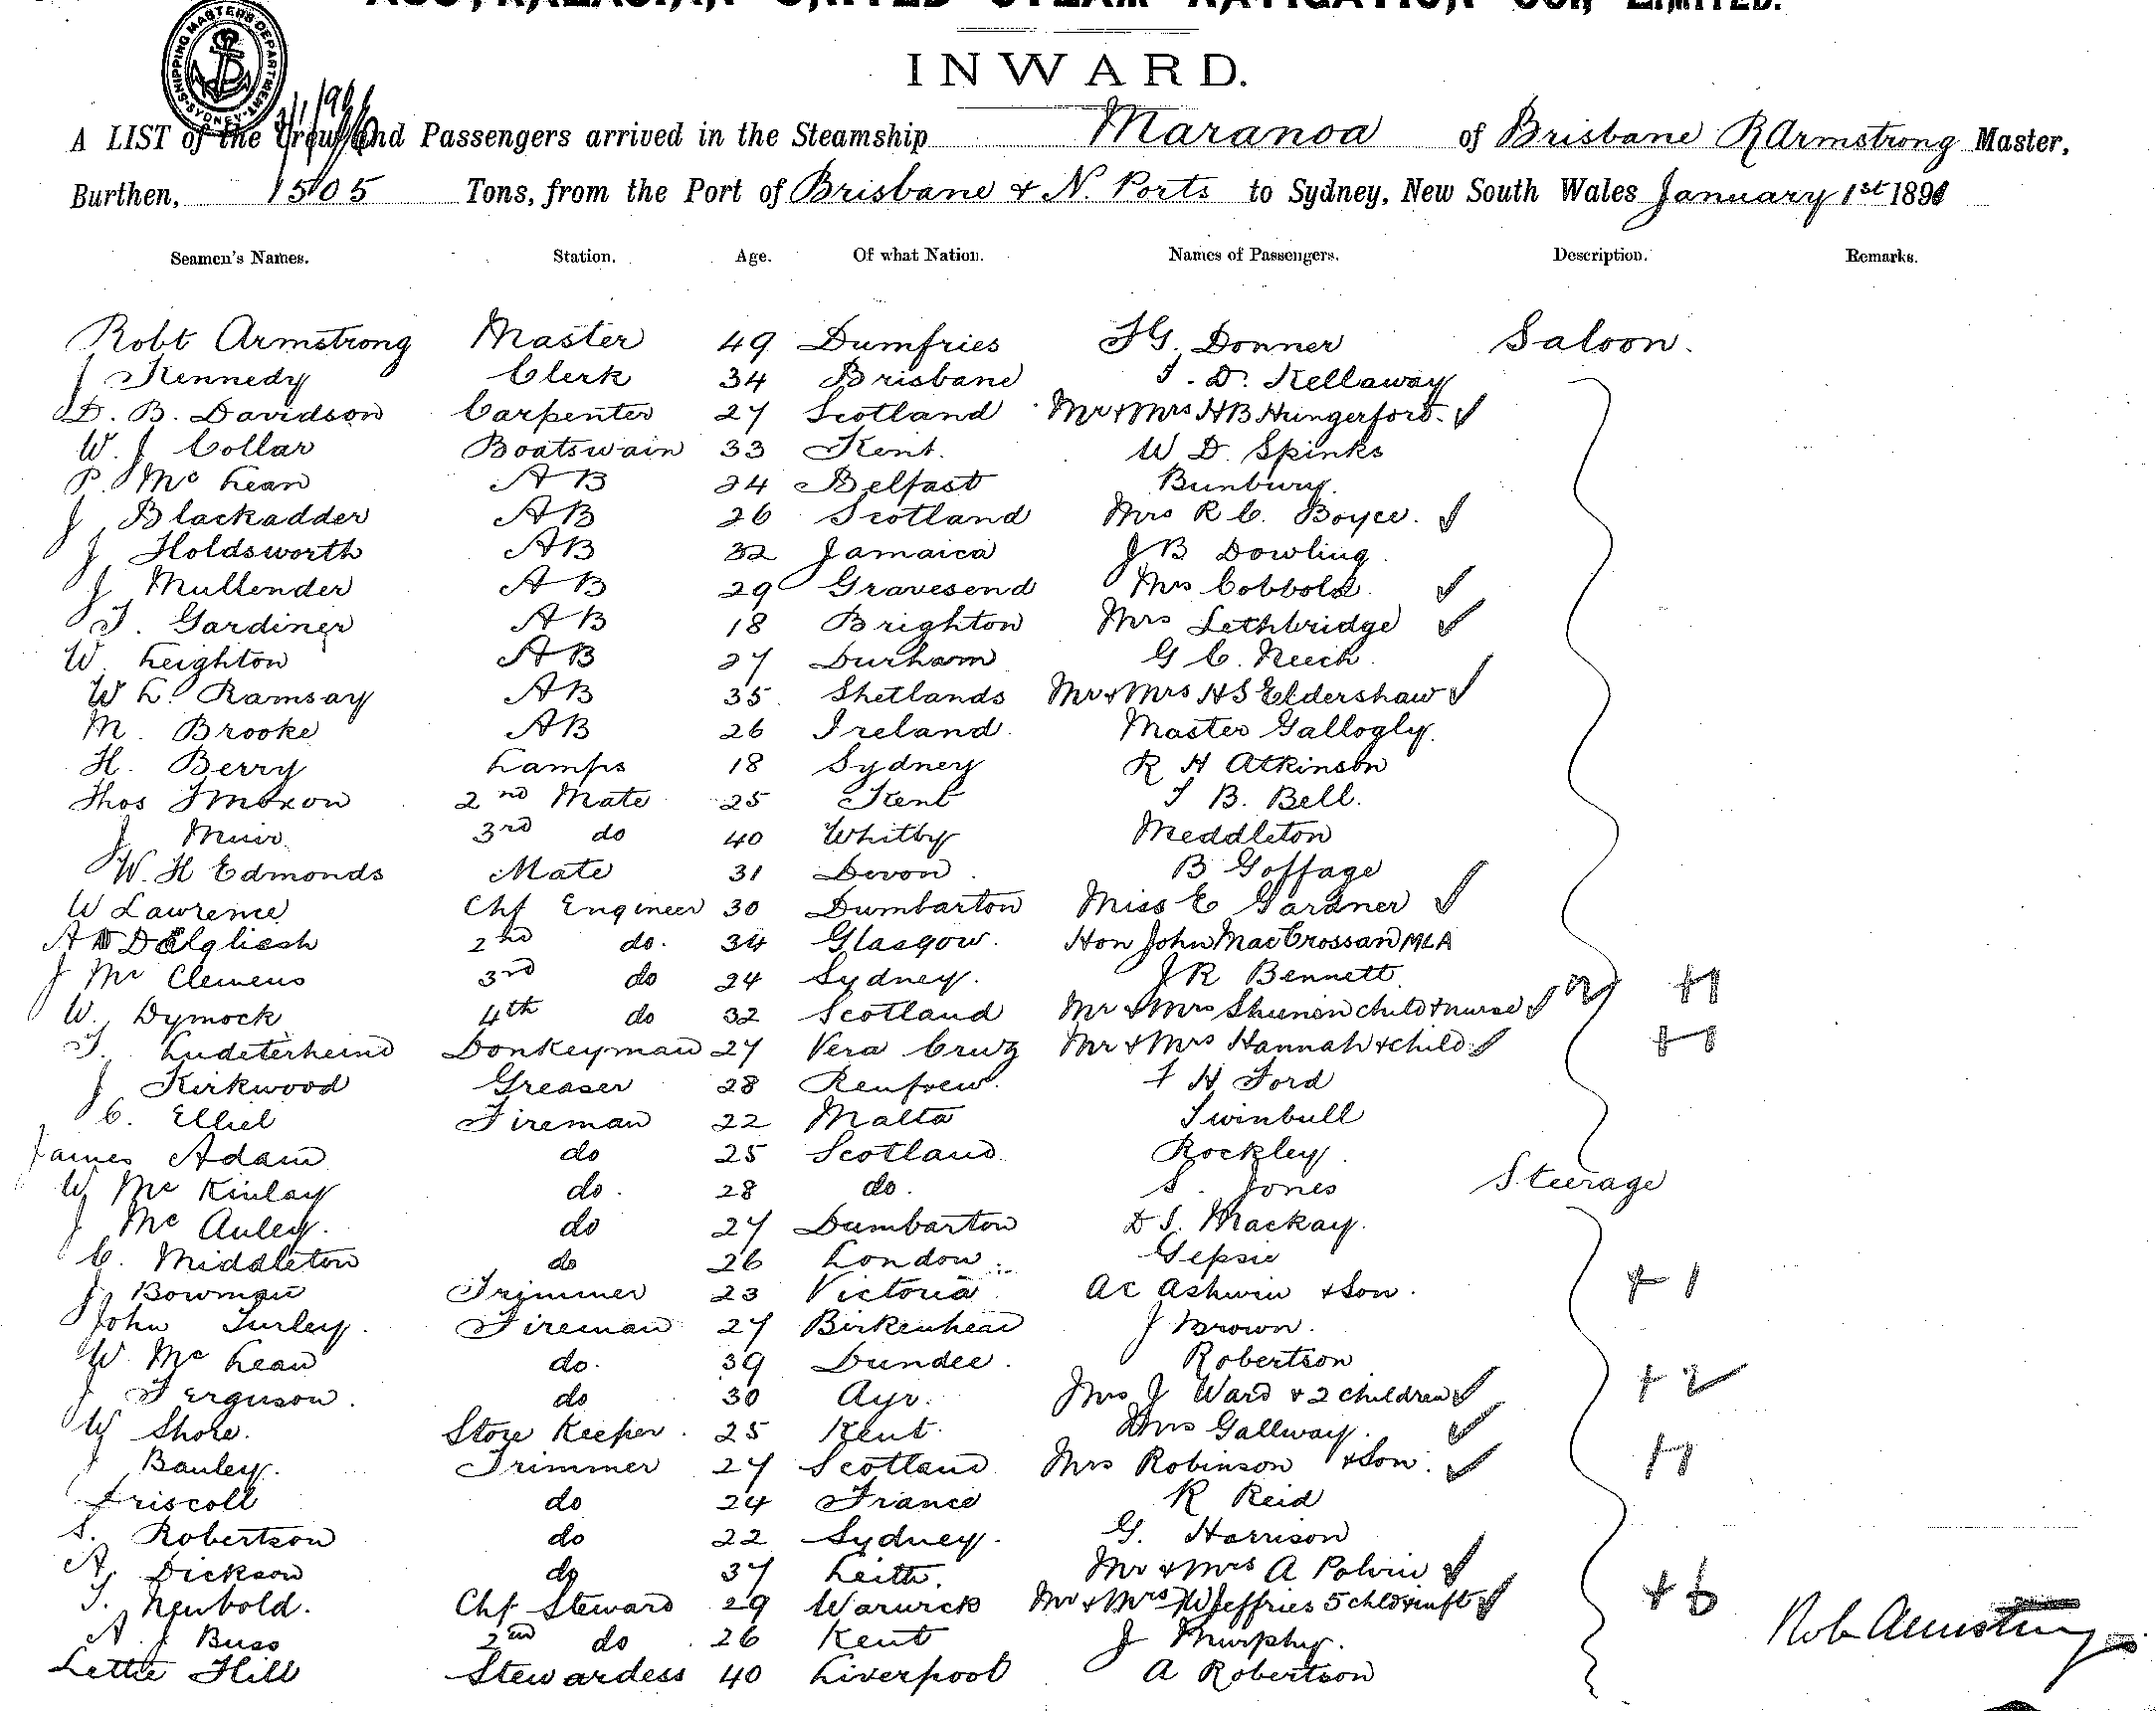 AUSTRALASIAN UNITED STEAM NAVIGATION CO., LIMITED.
SHIPPING MASTERS DEPARTMENT SYDNEY
INWARD.
A LIST of the Crew and Passengers arrived in the Steamship Maranoa of Brisbane R Armstrong Master,
Burthen, 1505 Tons, from the Port of Brisbane & N. Ports to Sydney, New South Wales January 1st 1891
Seamen's Names. Station. Age. Of what Nation. Names of Passengers. Description. Remarks.
Robt Armstrong Master 49 Dumfries F G. Donner Saloon.
J Kennedy Clerk 34 Brisbane T. D. Kellaway
D. B. Davidson Carpenter 27 Scotland Mr & Mrs HB Hungerford
W. J Collar Boatswain 33 Kent. W D. Spinks
P. Mc Lean AB 24 Belfast Bunbury.
J Blackadder AB 26 Scotland Mrs R C. Boyce.
J Holdsworth AB 32 Jamaica J B Dowling.
J Mullender AB 29 Gravesend Mrs Cobbold
T. Gardiner AB 18 Brighton Mrs Lethbridge
W. Leighton AB 27 Durham G C. Neech.
W L. Ramsay AB 35 Shetlands Mr & Mrs HS Eldershaw
M. Brooke AB 26 Ireland. Master Gallogly.
H. Berry Lamps 18 Sydney R H Atkinson
Thos J Moxon 2nd Mate 25 Kent T B. Bell.
J Muir. 3rd do 40 Whitby Meddleton
W. H Edmonds Mate 31 Devon. B Goffage
W Lawrence Chf Engineer 30 Dumbarton Miss E Gardner
A Dalgliesh 2nd do. 34 Glasgow. Hon John MacCrossan MLA
J Mc Clemens 3rd do 24 Sydney. J R Bennett +1
W. Dymock 4th do 32 Scotland Mr & Mrs child & nurse
Donkeyman 27 Vera Cruz Mr & Mrs Hannah & child +1
J Kirkwood Greaser 28 Renfrew. F H Ford
C. Elliel Fireman 22 Malta Swinbull
James Adam do 25 Scotland Rockley.
W Mc Kinlay do. 28 do. S. Jones Steerage
J Mc Auley. do 27 Dumbarton D S. Mackay.
C. Middleton do 26 London. Gepsie
J. Bowman Trimmer 23 Victoria A C Ashwin & Son. +1
John Turley. Fireman 27 Birkenhead J Brown.
W Mc Lean do. 39 Dundee. Robertson
J Ferguson. do 30 Ayr. Mrs J Ward & 2 children +2
W Shore. Store Keeper. 25 Kent. Mrs Gallway.
J Bauley. Trimmer 27 Scotland Mrs Robinson & Son. +1
Driscoll do 24 France R Reid
S. Robertson do 22 Sydney. G. Harrison
A. Dickson do 37 Leith. Mr & Mrs A Polvin
T. Newbold. Chf Steward 29 Warwick Mr & Mrs W Jeffries 5 chld & inft +6
A. J Buss 2nd do 26 Kent J Murphy.
Lettie Hill Stewardess 40 Liverpool A Robertson
Rob Armstrong